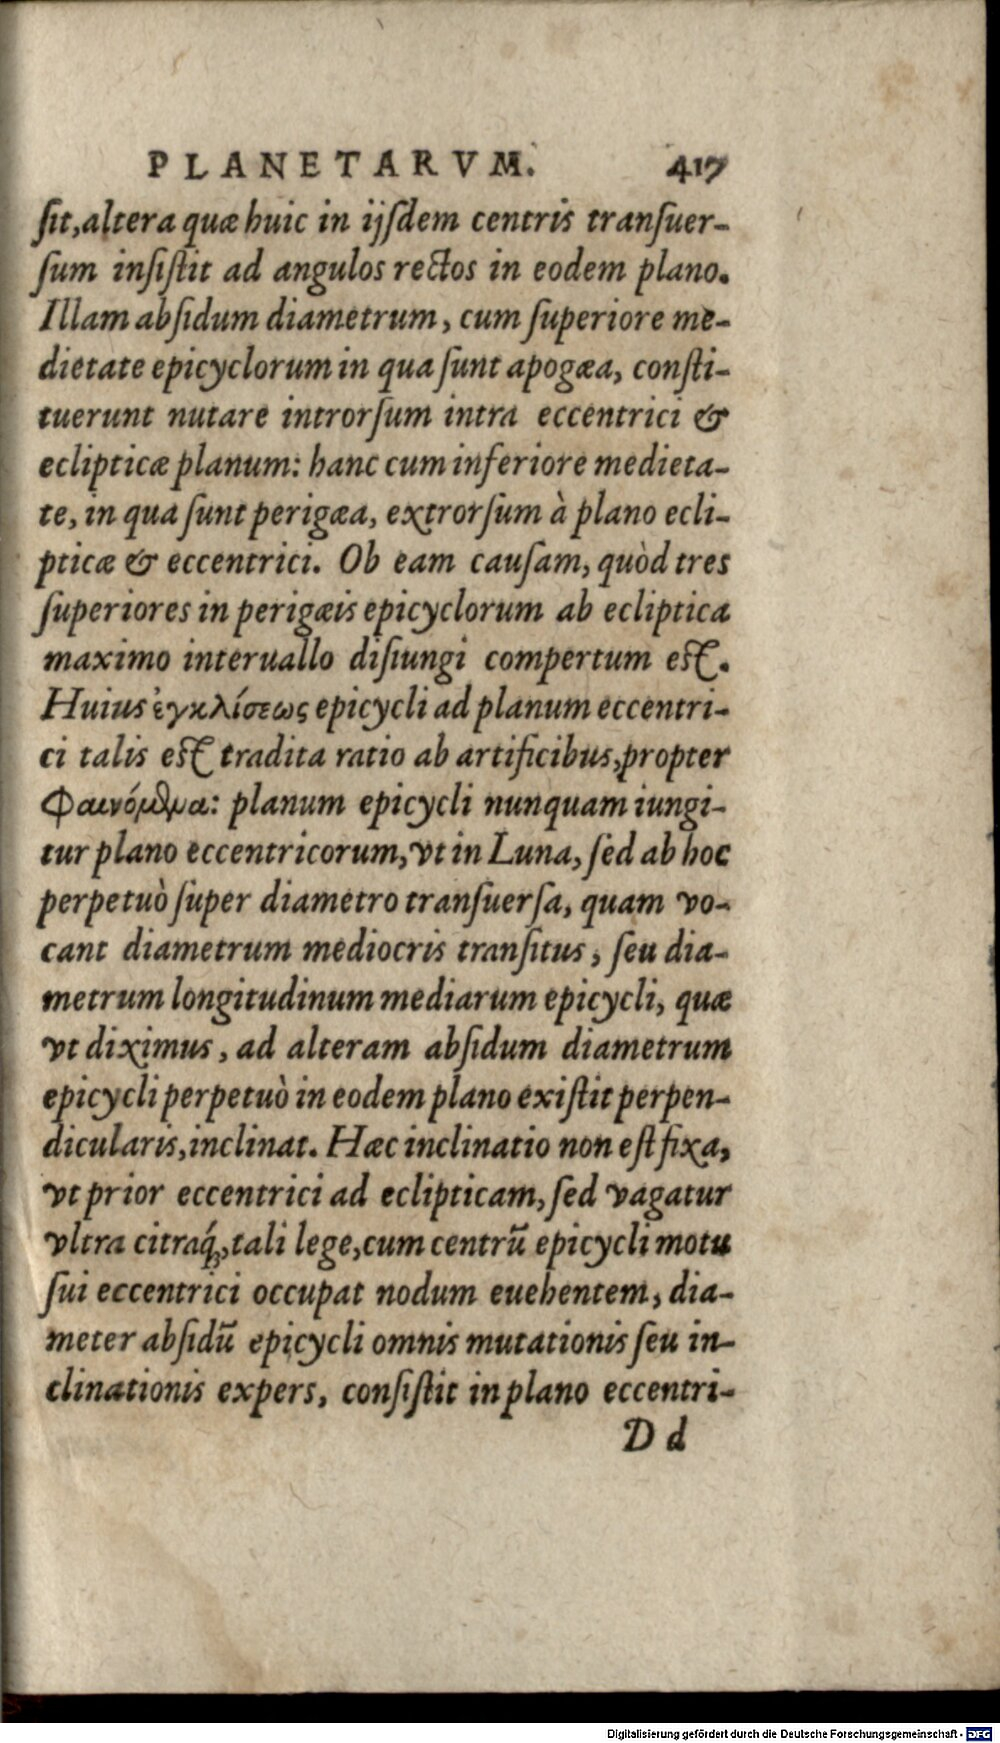 PLANETARVM. 417
ſit, altera quæ huic in ijſdem centris tranſuer-
ſum inſiſtit ad angulos rectos in eodem plano.
Illam abſidum diametrum, cum ſuperiore me-
dietate epicyclorum in qua ſunt apogæa, conſti-
tuerunt nutare introrſum intra eccentrici &
eclipticæ planum: hanc cum inferiore medieta-
te, in qua ſunt perigæa, extrorſum à plano ecli-
pticæ & eccentrici. Ob eam cauſam, quòd tres
ſuperiores in perigæis epicyclorum ab ecliptica
maximo interuallo diſiungi compertum eſt.
Huius ἐγκλίσεως epicycli ad planum eccentri-
ci talis eſt tradita ratio ab artificibus, propter
Φαινόμενα: planum epicycli nunquam iungi-
tur plano eccentricorum, vt in Luna, ſed ab hoc
perpetuò ſuper diametro tranſuerſa, quam vo-
cant diametrum mediocris tranſitus, ſeu dia-
metrum longitudinum mediarum epicycli, quæ
vt diximus, ad alteram abſidum diametrum
epicycli perpetuò in eodem plano exiſtit perpen-
dicularis, inclinat. Hæc inclinatio non eſt fixa,
vt prior eccentrici ad eclipticam, ſed vagatur
vltra citraq́;, tali lege, cum centrū epicycli motu
ſui eccentrici occupat nodum euehentem, dia-
meter abſidū epicycli omnis mutationis ſeu in-
clinationis expers, conſiſtit in plano eccentri-
D d
Digitalisierung gefördert durch die Deutsche Forschungsgemeinschaft - DFG